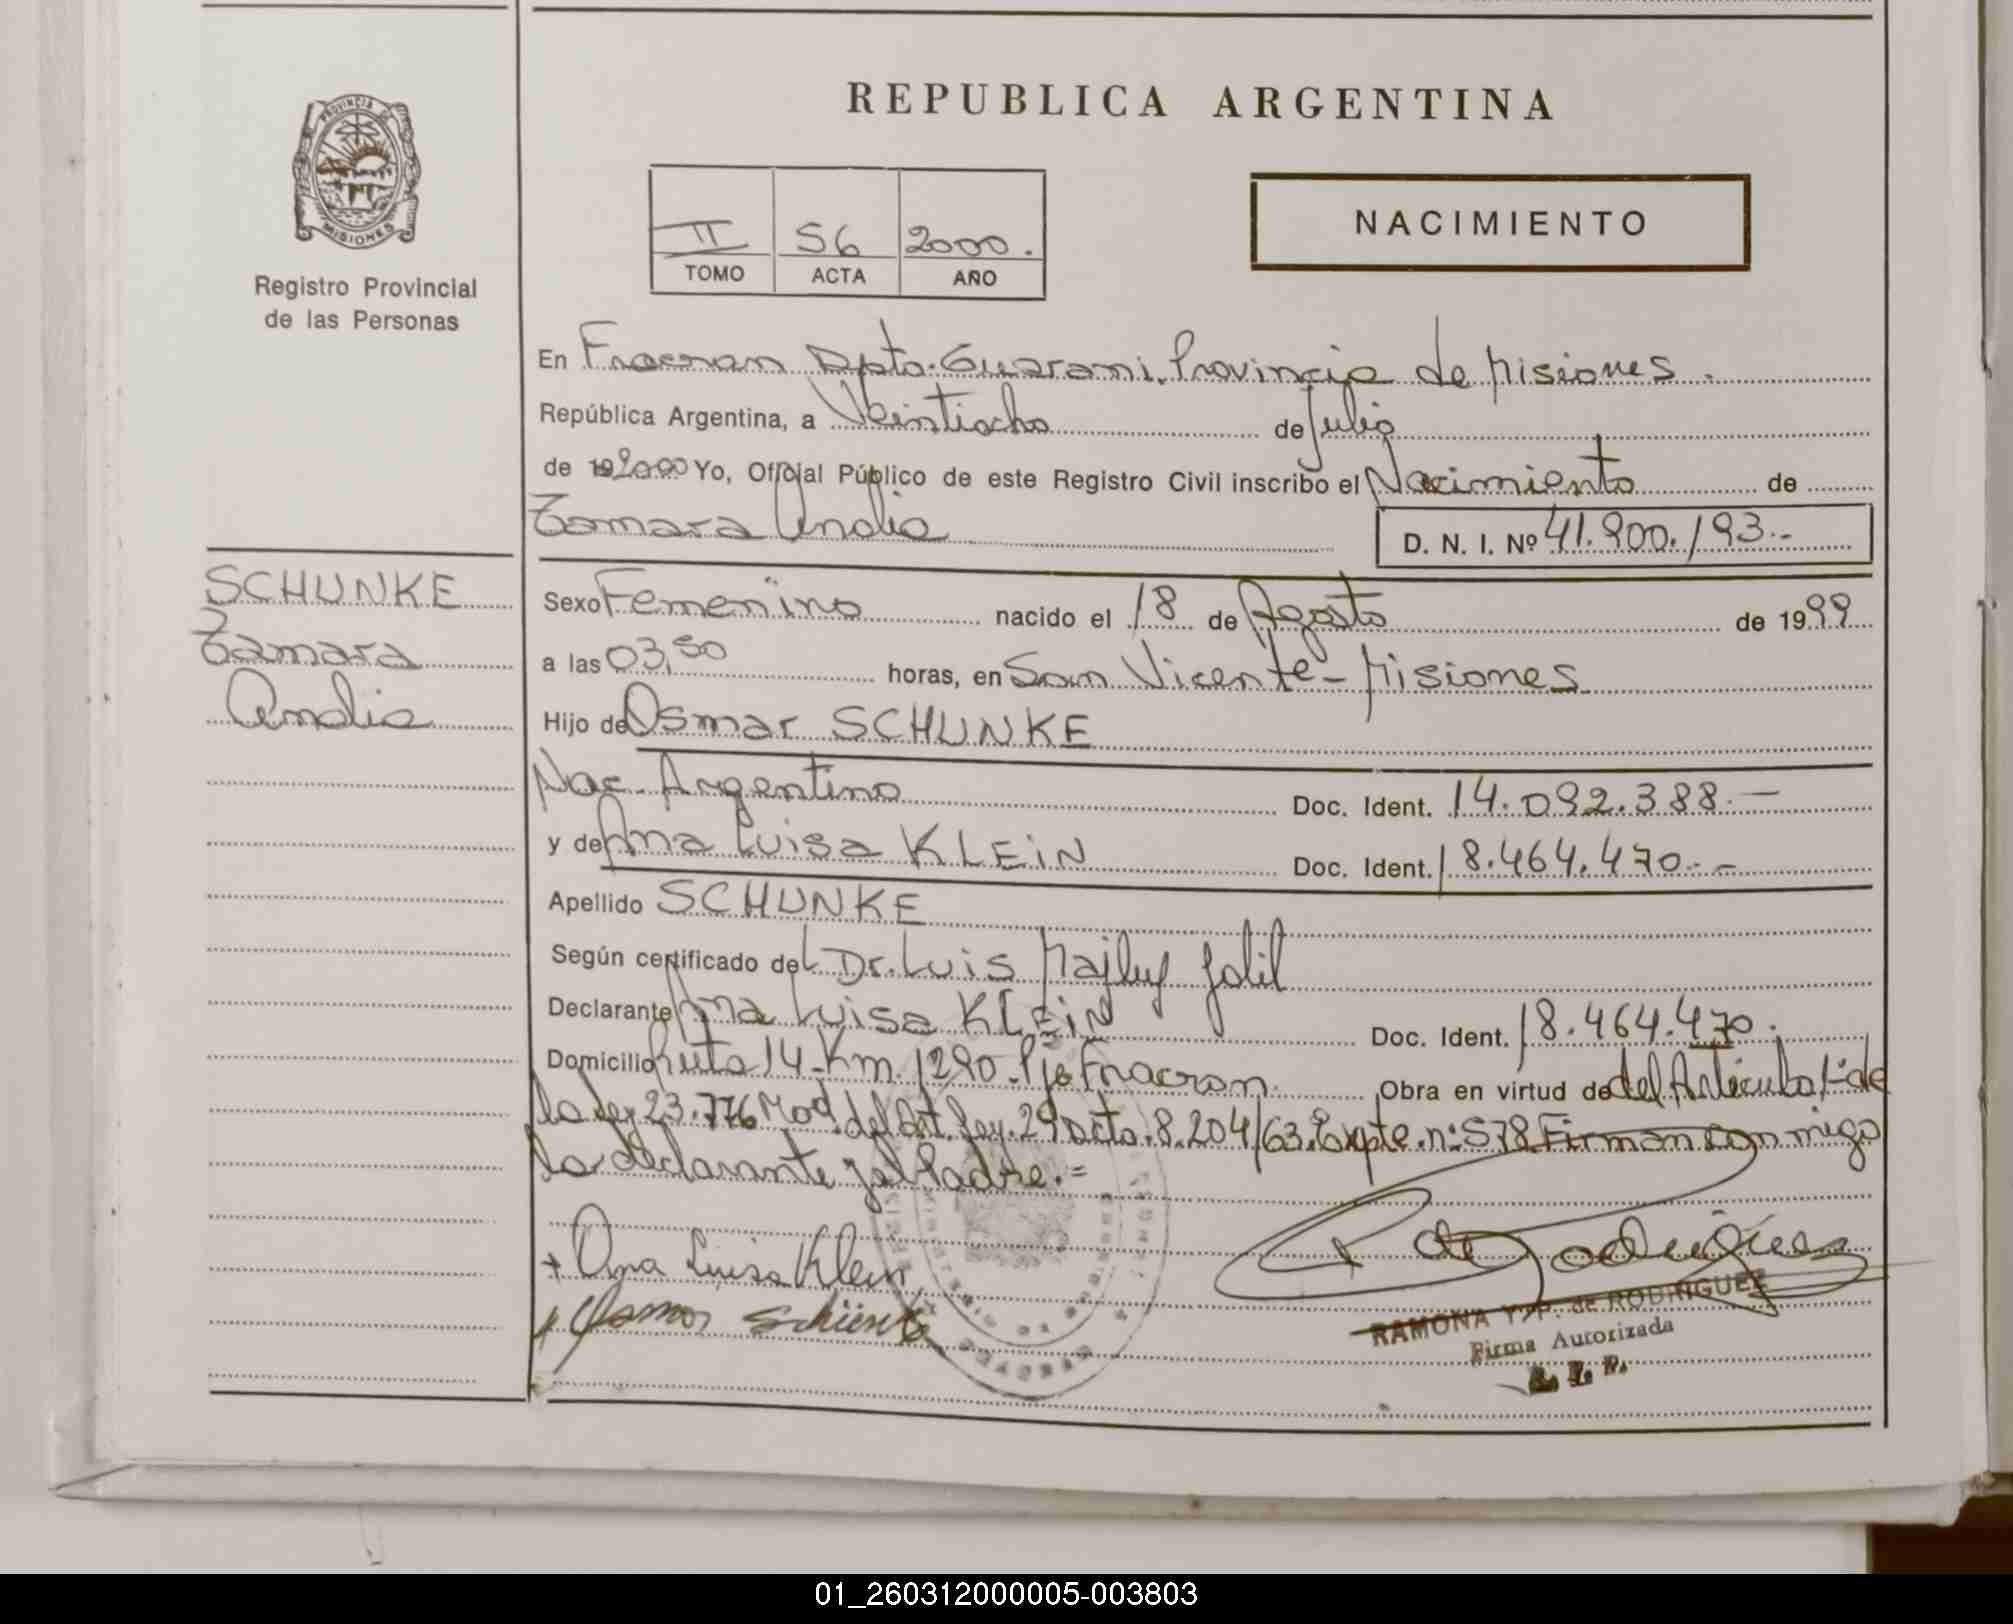 REPUBLICA ARGENTINA
PROVINCIA DE
MISIONES
Registro Provincial
de las Personas
II 56 2000.
TOMO ACTA AÑO
NACIMIENTO
En Fracran Dpto. Guarani. Provincia de Misiones.
República Argentina, a Veintiocho de Julio
de 192000 Yo, Oficial Público de este Registro Civil inscribo el Nacimiento de
Tamara Analia
D. N. I. Nº 41.900.193.-
SCHUNKE
Tamara
Analia
Sexo Femenino nacido el 18 de Agosto de 1999
a las 03,50 horas, en San Vicente - Misiones
Hijo de Osmar SCHUNKE
Nac. Argentino Doc. Ident. 14.092.388.-
y de Ana Luisa KLEIN Doc. Ident. 18.464.470.-
Apellido SCHUNKE
Según certificado del Dr. Luis Jalil
Declarante Ana Luisa KLEIN Doc. Ident. 18.464.470.
Domicilio Ruta 14-Km. 1290-Pje Fracran Obra en virtud de del Articulo 1º de
la Ley 23.776 Mod. del Art. Ley. 29 Dcto. 8.204/63. Expte. nº 578 Firman con migo
la declarante y el Padre.=
+ Ana Luisa Klein
+ Osmar Schünke
R de Rodriguez
RAMONA Y. P. de RODRIGUEZ
Firma Autorizada
R. P. P.
FRACRAN
01_260312000005-003803